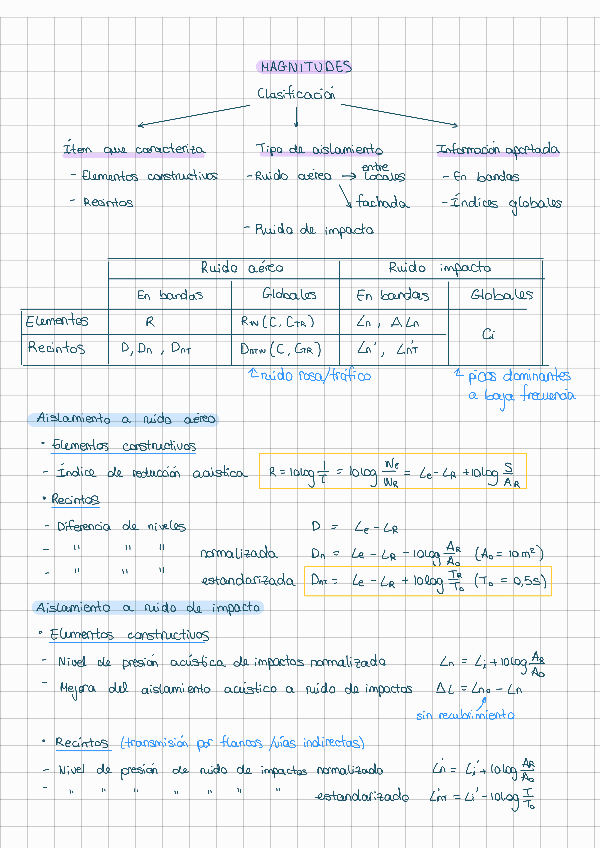 MAGNITUDES
Clasificación
Ítem que caracteriza
Tipo de aislamiento
Información aportada
- Elementos constructivos
- Ruido aéreo → entre locales
- En bandas
- Recintos
fachada
- Índices globales
- Ruido de impacto
Ruido aéreo | Ruido impacto
En bandas | Globales | En bandas | Globales
Elementos | R | Rw (C, CTR) | Ln, ΔLn | Ci
Recintos | D, Dn, DnT | DnTw (C, CTR) | Ln', Ln'T
↑ ruido rosa/tráfico
↑ picos dominantes
a baja frecuencia
Aislamiento a ruido aéreo
• Elementos constructivos
- Índice de reducción acústica R = 10log 1/τ = 10log We/WR = Le - LR + 10log S/AR
• Recintos
- Diferencia de niveles D = Le - LR
- " " " normalizada Dn = Le - LR - 10log AR/A0 (A0 = 10m²)
- " " " estandarizada DnT = Le - LR + 10log TR/T0 (T0 = 0,5s)
Aislamiento a ruido de impacto
• Elementos constructivos
- Nivel de presión acústica de impactos normalizado Ln = Li + 10log AR/A0
- Mejora del aislamiento acústico a ruido de impactos ΔL = Ln0 - Ln
sin recubrimiento
• Recintos (transmisión por flancos /vías indirectas)
- Nivel de presión de ruido de impactos normalizado Ln' = Li' + 10log AR/A0
- " " " " " " " estandarizado Ln'T = Li' - 10log T/T0